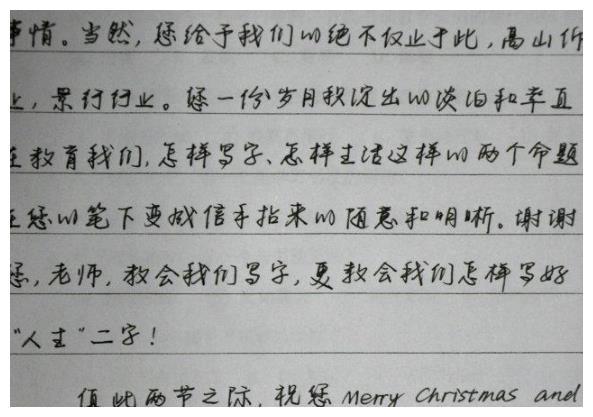 事情。当然，您给予我们的绝不仅止于此，高山仰
止，景行行止。您一份岁月积淀出的淡泊和率直
在教育我们，怎样写字、怎样生活这样的两个命题
在您的笔下变成信手拈来的随意和明晰。谢谢
您，老师，教会我们写字，更教会我们怎样写好
“人生”二字！
值此两节之际，祝您 Merry Christmas and